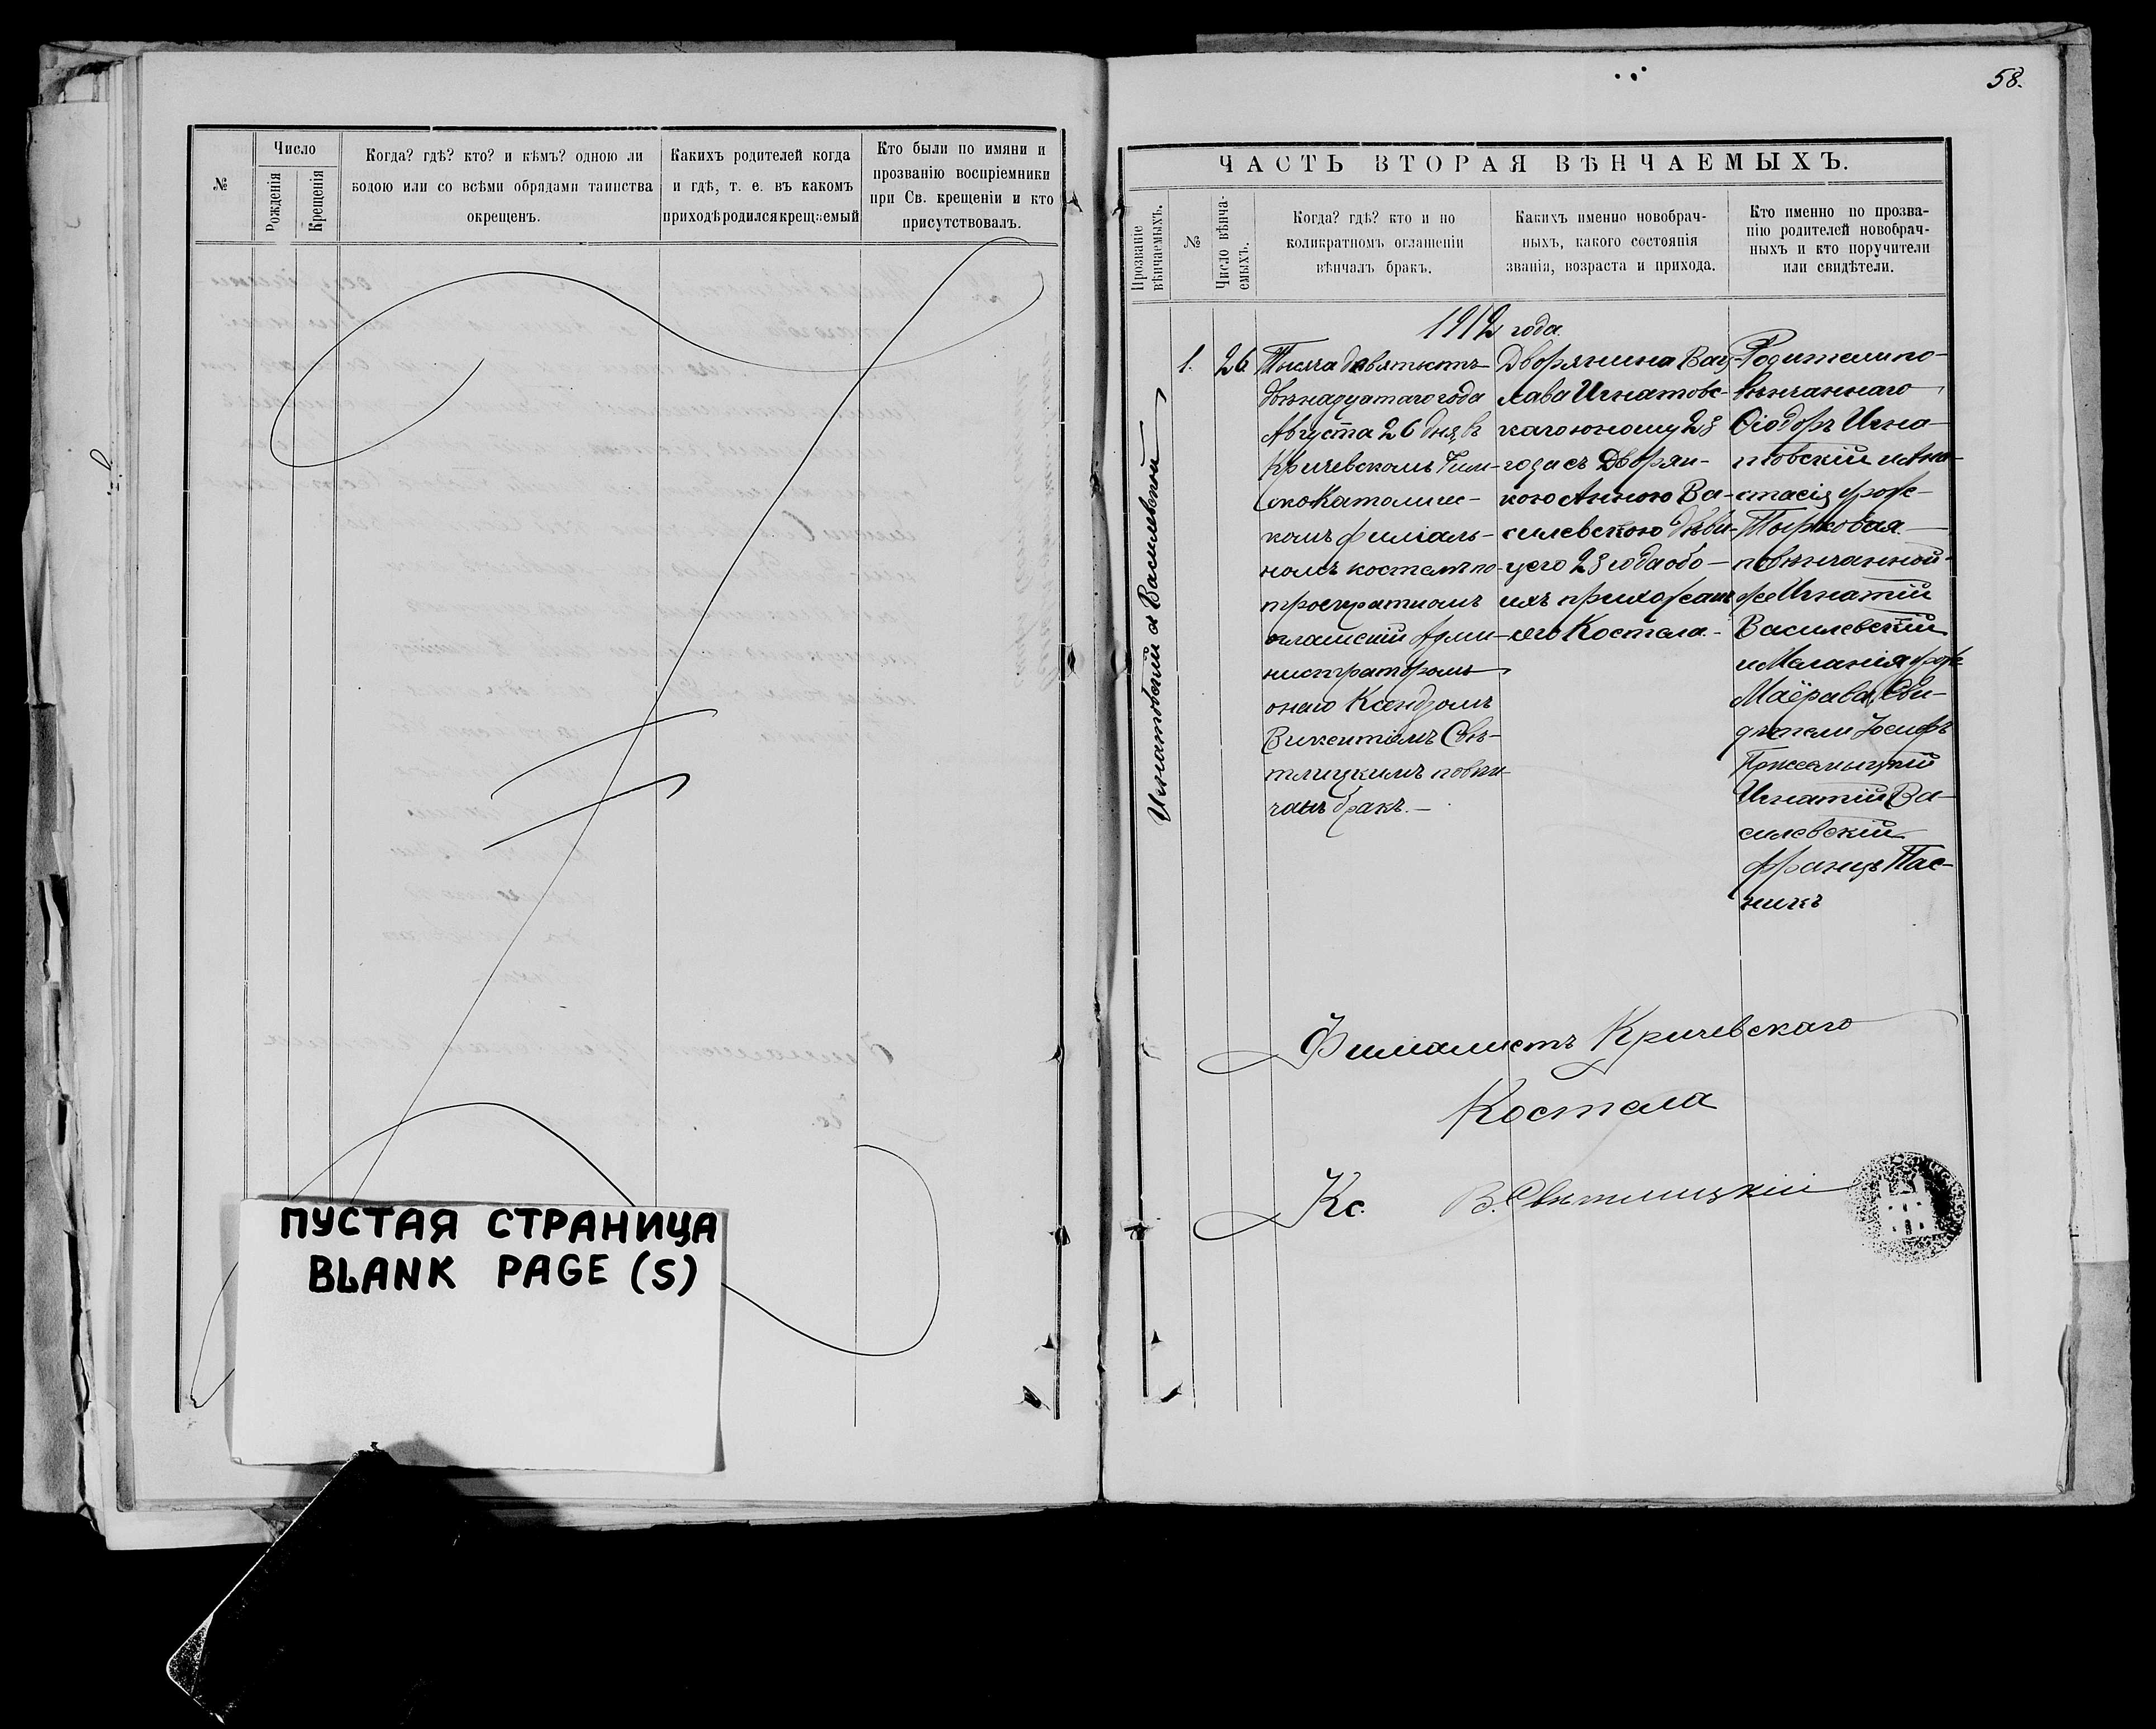 №
Число
Рожденія
Крещенія
Когда? гдѣ? кто? и кѣмъ? одною ли
водою или со всѣми обрядами таинства
окрещенъ.
Какихъ родителей когда
и гдѣ, т. е. въ какомъ
приходѣ родился крещаемый
Кто были по имяни и
прозванію воспріемники
при Св. крещеніи и кто
присутствовалъ.
ПУСТАЯ СТРАНИЦА
BLANK PAGE (S)
58.
ЧАСТЬ ВТОРАЯ ВѢНЧАЕМЫХЪ.
Прозваніе
вѣнчаемыхъ.
№
Число вѣнча-
емыхъ.
Когда? гдѣ? кто и по
коликратномъ оглашеніи
вѣнчалъ бракъ.
Какихъ именно новобрач-
ныхъ, какого состоянія
званія, возраста и прихода.
Кто именно по прозва-
нію родителей новобрач-
ныхъ и кто поручители
или свидѣтели.
1912 года.
Игнатовскій и Василевской
1.
26
Тысяча девятьстъ
двѣнадцатаго года
Августа 26 дня, въ
Кричевскомъ Рим-
скокатоличес-
комъ филіаль-
номъ костелѣ по
троекратномъ
оглашеніи Адми-
нистраторомъ
онаго Ксендзомъ
Викентіемъ Свѣ-
тлицкимъ повѣн-
чанъ бракъ. —
Дворянина Вац-
лава Игнатовс-
каго юношу 28
года съ Дворян-
кою Анною Ва-
силевскою дѣви-
цею 28 года обо-
ихъ прихожанъ
сего Костела. -
Родители по-
вѣнчаннаго
Ѳіодоръ Игна-
товскій и Ана-
стасія рожд
повѣнчанной-
Игнатій
Василевскій
и Меланія рожд
Сви-
дѣтели Іосифъ
Игнатій Ва-
силевскій
Францъ Пас-
никъ
Филіалистъ Кричевскаго
Костела
Кс. В. Свѣтлицкій